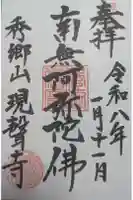 奉拝
令和八年
一月十一日
南無阿弥陀佛
秀郷山現聲寺